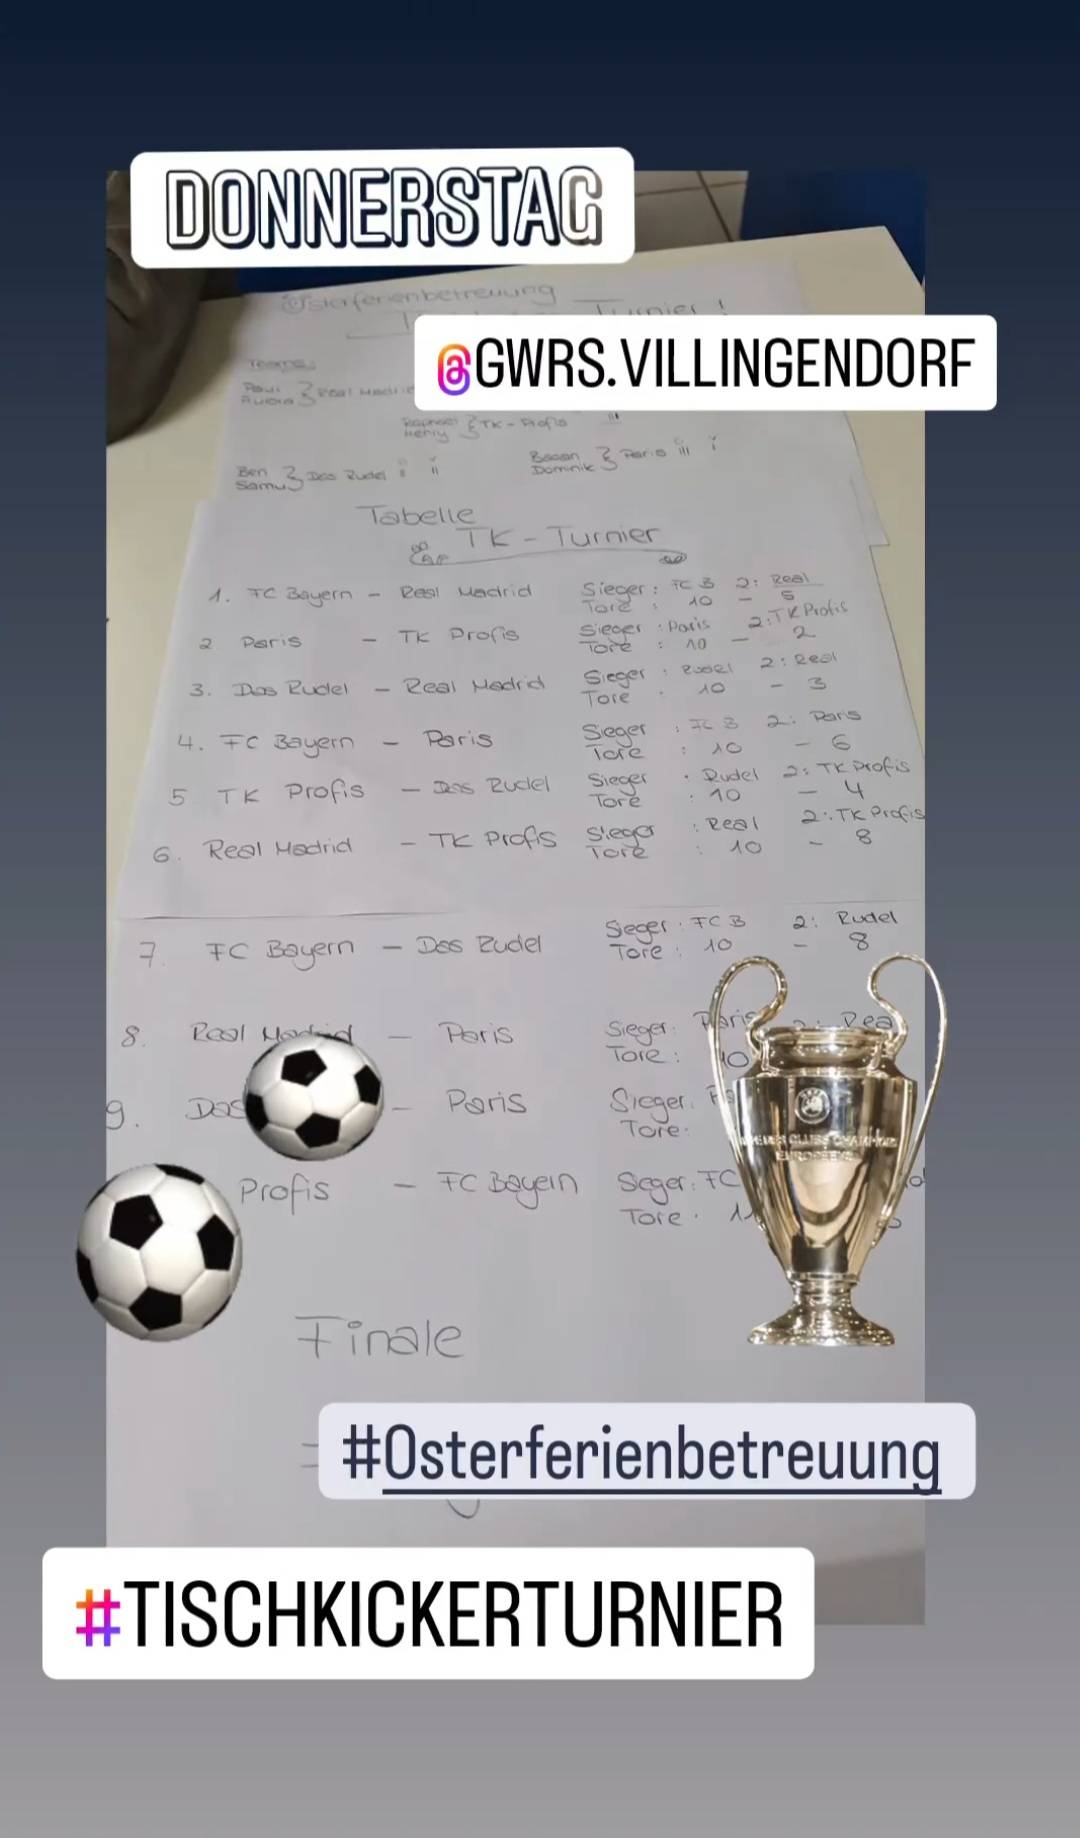 DONNERSTAG
Osterferienbetreuung
Turnier!
@GWRS.VILLINGENDORF
Teams:
Real Madrid
Raphael
Henry } TK-Profis III
Ben
Samu } Das Rudel
Dominik } Paris
Tabelle
TK-Turnier
1. FC Bayern - Real Madrid Sieger: FC B 2: Real
Tore: 10 - 5
2 Paris - TK Profis Sieger: Paris 2: TK Profis
Tore: 10 - 2
3. Das Rudel - Real Madrid Sieger: Rudel 2: Real
Tore: 10 - 3
4. FC Bayern - Paris Sieger: FC B 2: Paris
Tore: 10 - 6
5 TK Profis - Das Rudel Sieger: Rudel 2: TK Profis
Tore: 10 - 4
6. Real Madrid - TK Profis Sieger: Real 2: TK Profis
Tore: 10 - 8
7. FC Bayern - Das Rudel Sieger: FC B 2: Rudel
Tore: 10 - 8
8. Real Madrid - Paris Sieger: Paris 2: Real
Tore: 10
9. Das - Paris Sieger:
Tore:
Profis - FC Bayern Sieger: FC
Tore:
Finale
#Osterferienbetreuung
#TISCHKICKERTURNIER